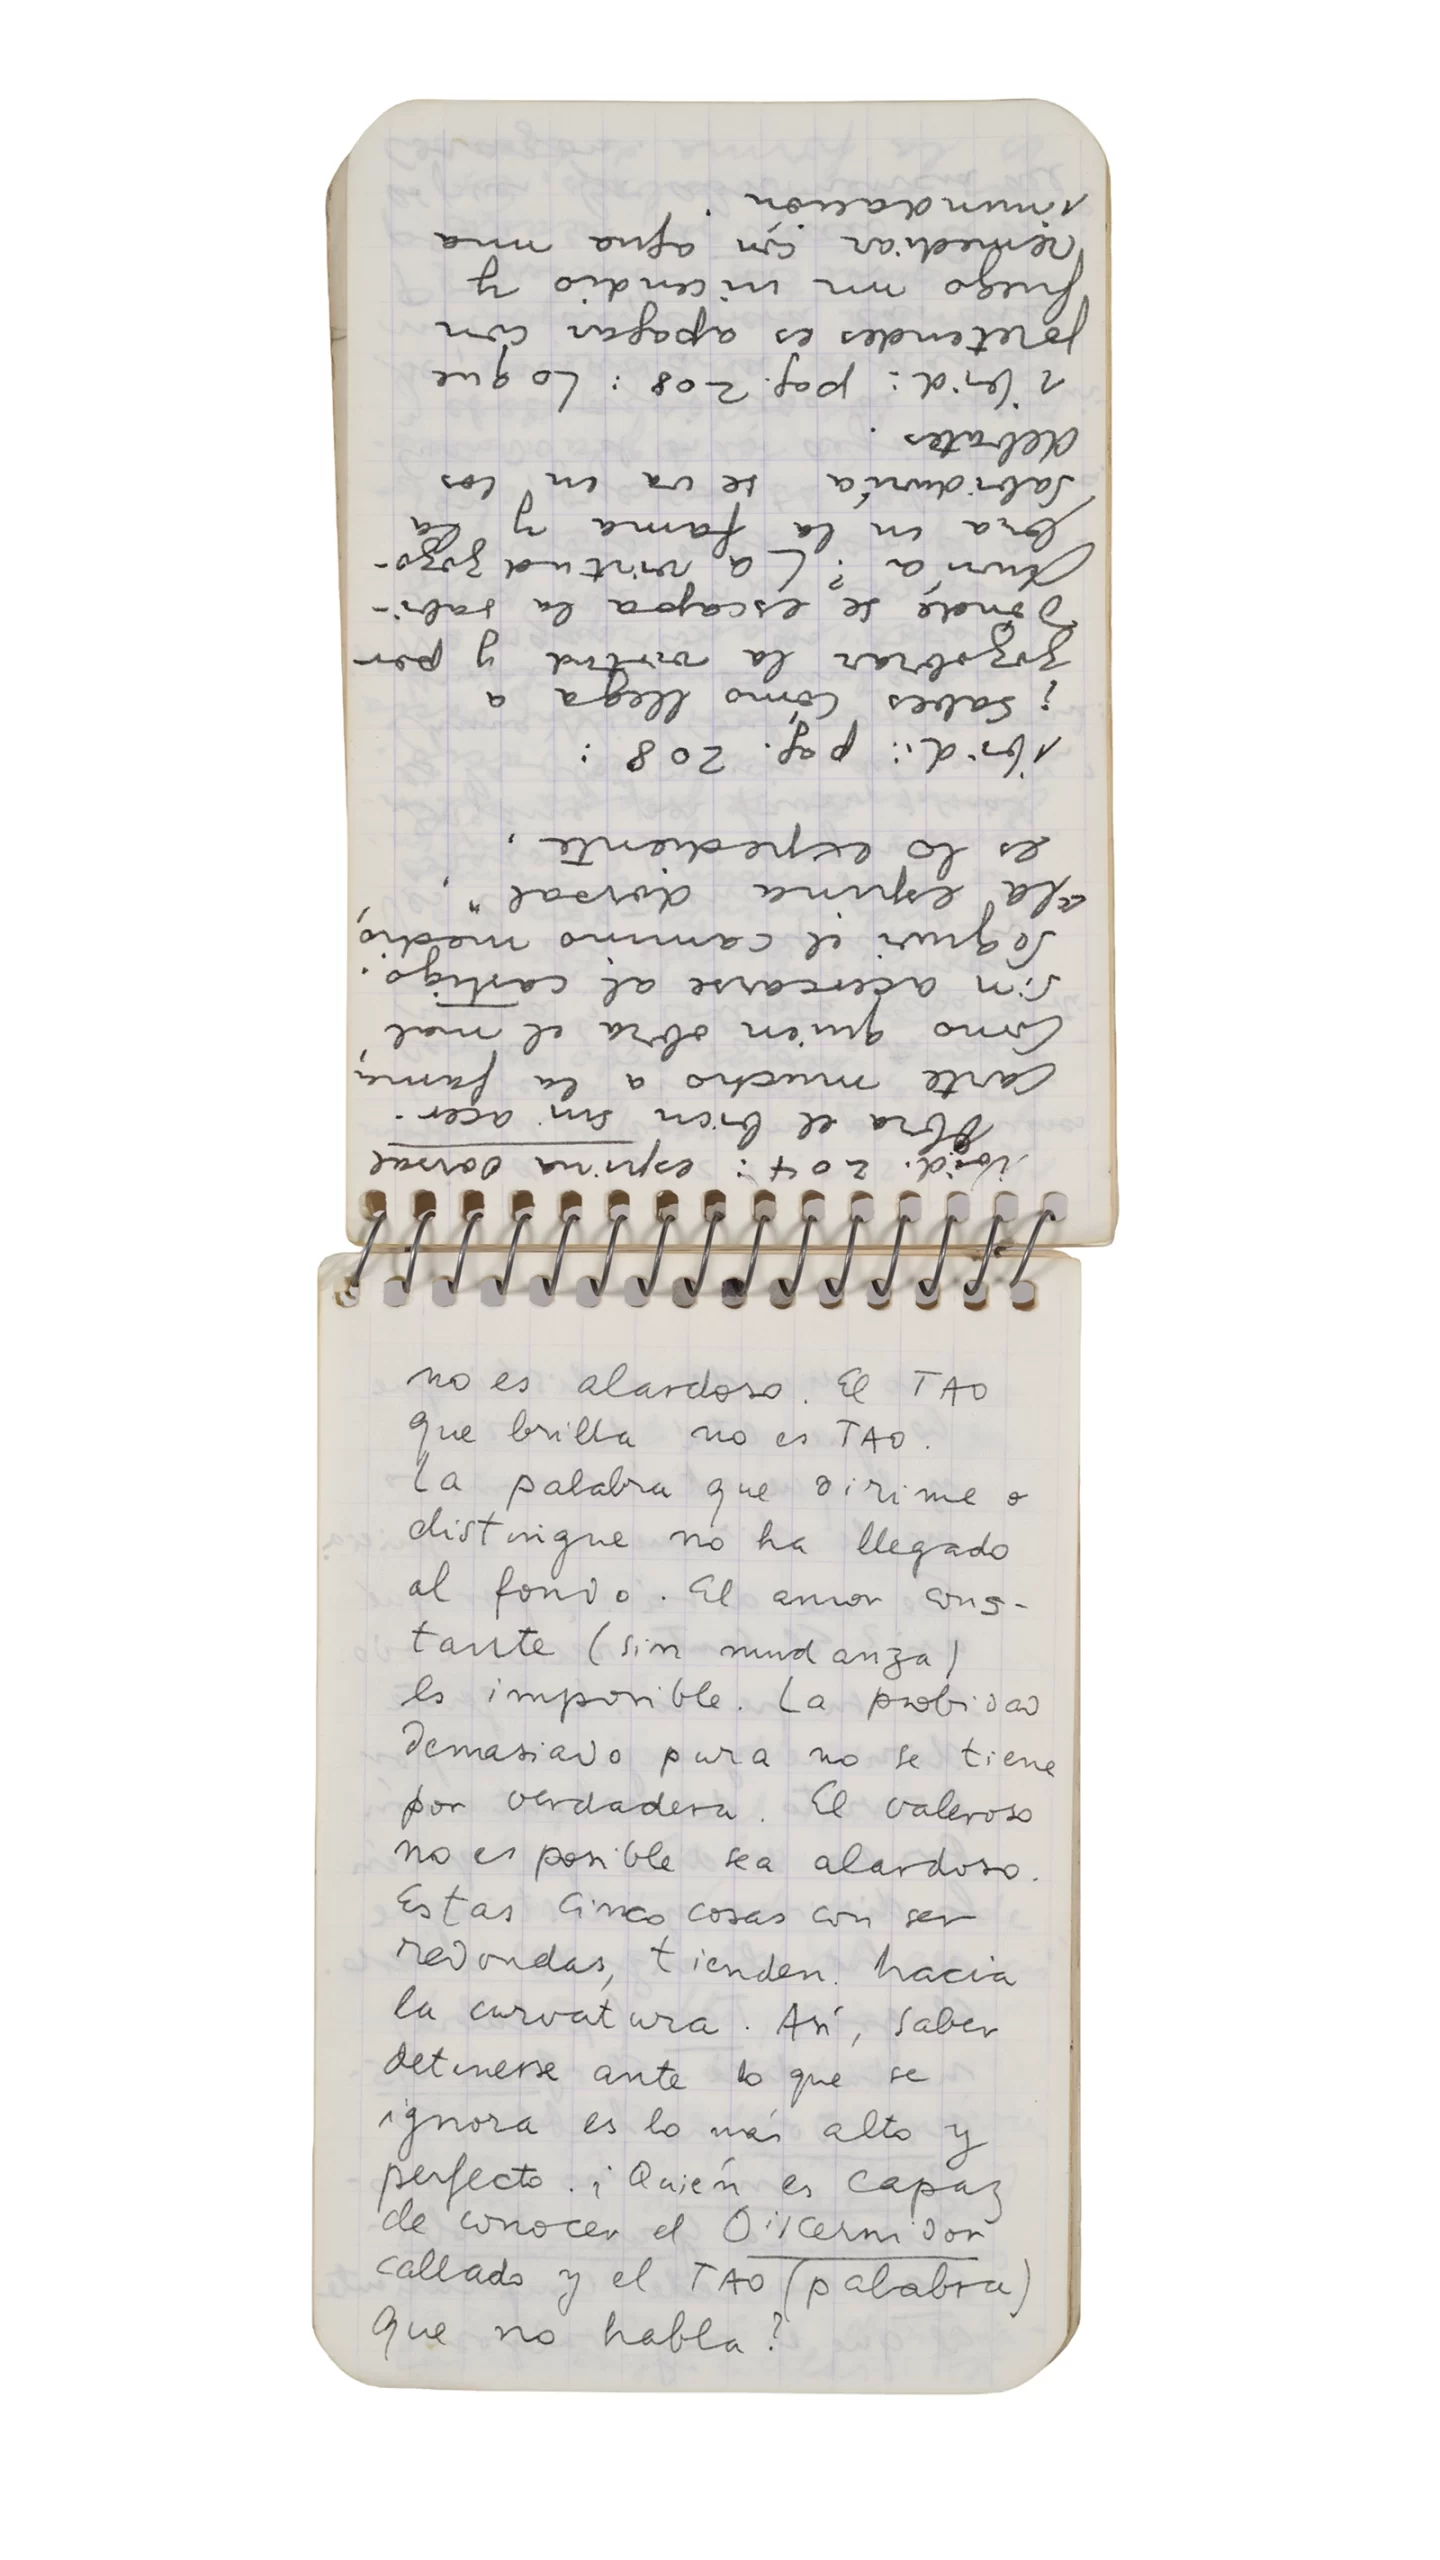 ibid. 204: espina dorsal
Obra el bien sin acer-
carte mucho a la fama,
como quien obra el mal
sin acercarse al castigo.
Seguir el camino medio,
"la espina dorsal",
es lo expediente,
ibid: pag. 208:
¿Sabes cómo llega a
zozobrar la virtud y por
donde se escapa la sabi-
duría? La virtud zozo-
bra en la fama y la
sabiduría se va en los
debates.
ibid: pag. 208: Lo que
pretendes es apagar con
fuego un incendio y
remediar con agua una
inundación.
no es alardoso. El TAO
que brilla no es TAO.
La palabra que dirime o
distingue no ha llegado
al fondo. El amor cons-
tante (sin mudanza)
es imposible. La probidad
demasiado pura no se tiene
por verdadera. El valeroso
no es posible sea alardoso.
Estas cinco cosas con ser
redondas, tienden hacia
la curvatura. Así, saber
detenerse ante lo que se
ignora es lo más alto y
perfecto. ¿Quién es capaz
de conocer el Discernidor
callado y el TAO (palabra)
que no habla?